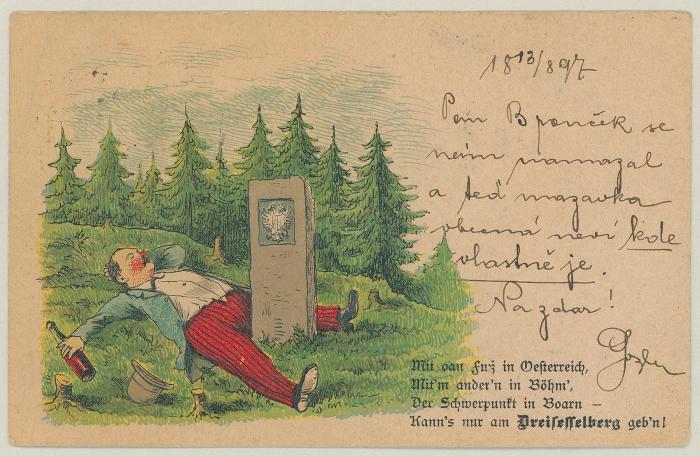 18 13/8 97
Pan Brouček se
nám namazal
a teď mazavka
obecná neví kde
vlastně je.
Na zdar!
Mit oan Fuß in Oesterreich,
Mit'm ander'n in Böhm',
Der Schwerpunkt in Boarn —
Kann's nur am Dreisesselberg geb'n!